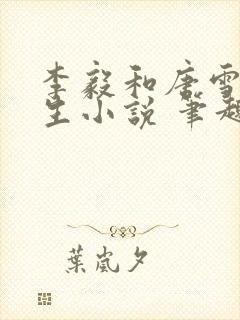 李毅和唐雪
生小说 笔趣
葉嵐夕